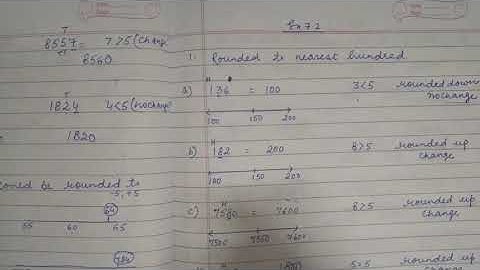 T
8557 = 7>5 (Change
+1
8560
T
1824 4<5 (nochange
1820
could be rounded to
-5, +5
64
55 60 65
Ex 7.2
1. Rounded to nearest hundred
a) 136 = 100 3<5 rounded down
nochange
100 150 200
b) 182 = 200 8>5 rounded up
change
100 150 200
c) = 7600 8>5 rounded up
change
7500 7550 7600
5=5 rounded up